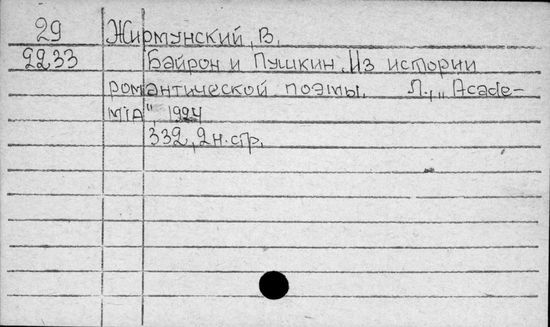 29 Жирмунский, В.
2233 Байрон и Пушкин. Из истории
романтической поэмы. Л., „Acade-
mia", 1924
332, 2 н. стр.